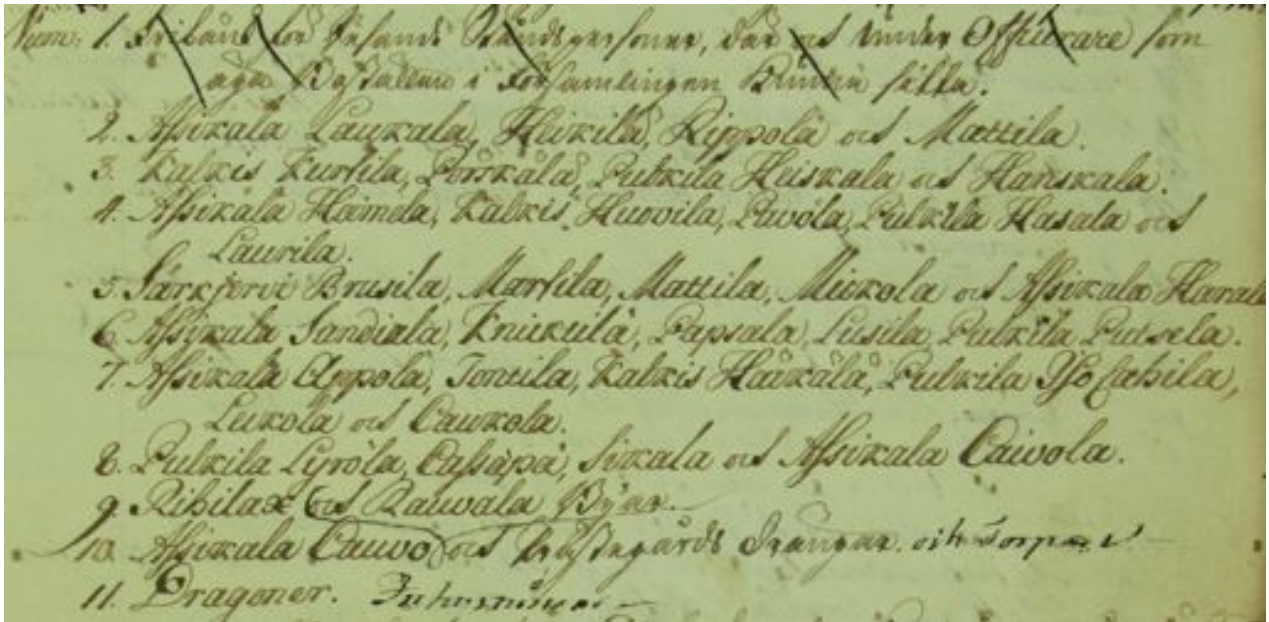 Num: 1. för Resande Ståndspersoner, där och Under Officerare som
äga Boställen i Församlingen kunna sitta.
2. Assikala Laukala, Heikilä, Rippola och Mattila.
3. Kalkis Kurhila, Pörskälä, Pulkila Heiskala och Hanskala.
4. Assikala Heimola, Kalkis Huovila, Pavola, Pulkila Hasala och
Laurila.
5. Särkjervi Brusila, Marhla, Mattila, Mickola och Assikala
6. Assikala Sandiala, Knuutila, Papsala, Lusila, Pulkila Pussela.
7. Assikala Uppola, Tontila, Kalkis Häikälä, Pulkila Iso
Lukola och Caukola.
8. Pulkila Lyröla, Sirala och Assikala Caivola.
9. Rihilax och Rauvala Byar.
10. Assikala Cauvo och Prästegårds Drängar. och Torpar
11. Dragoner.